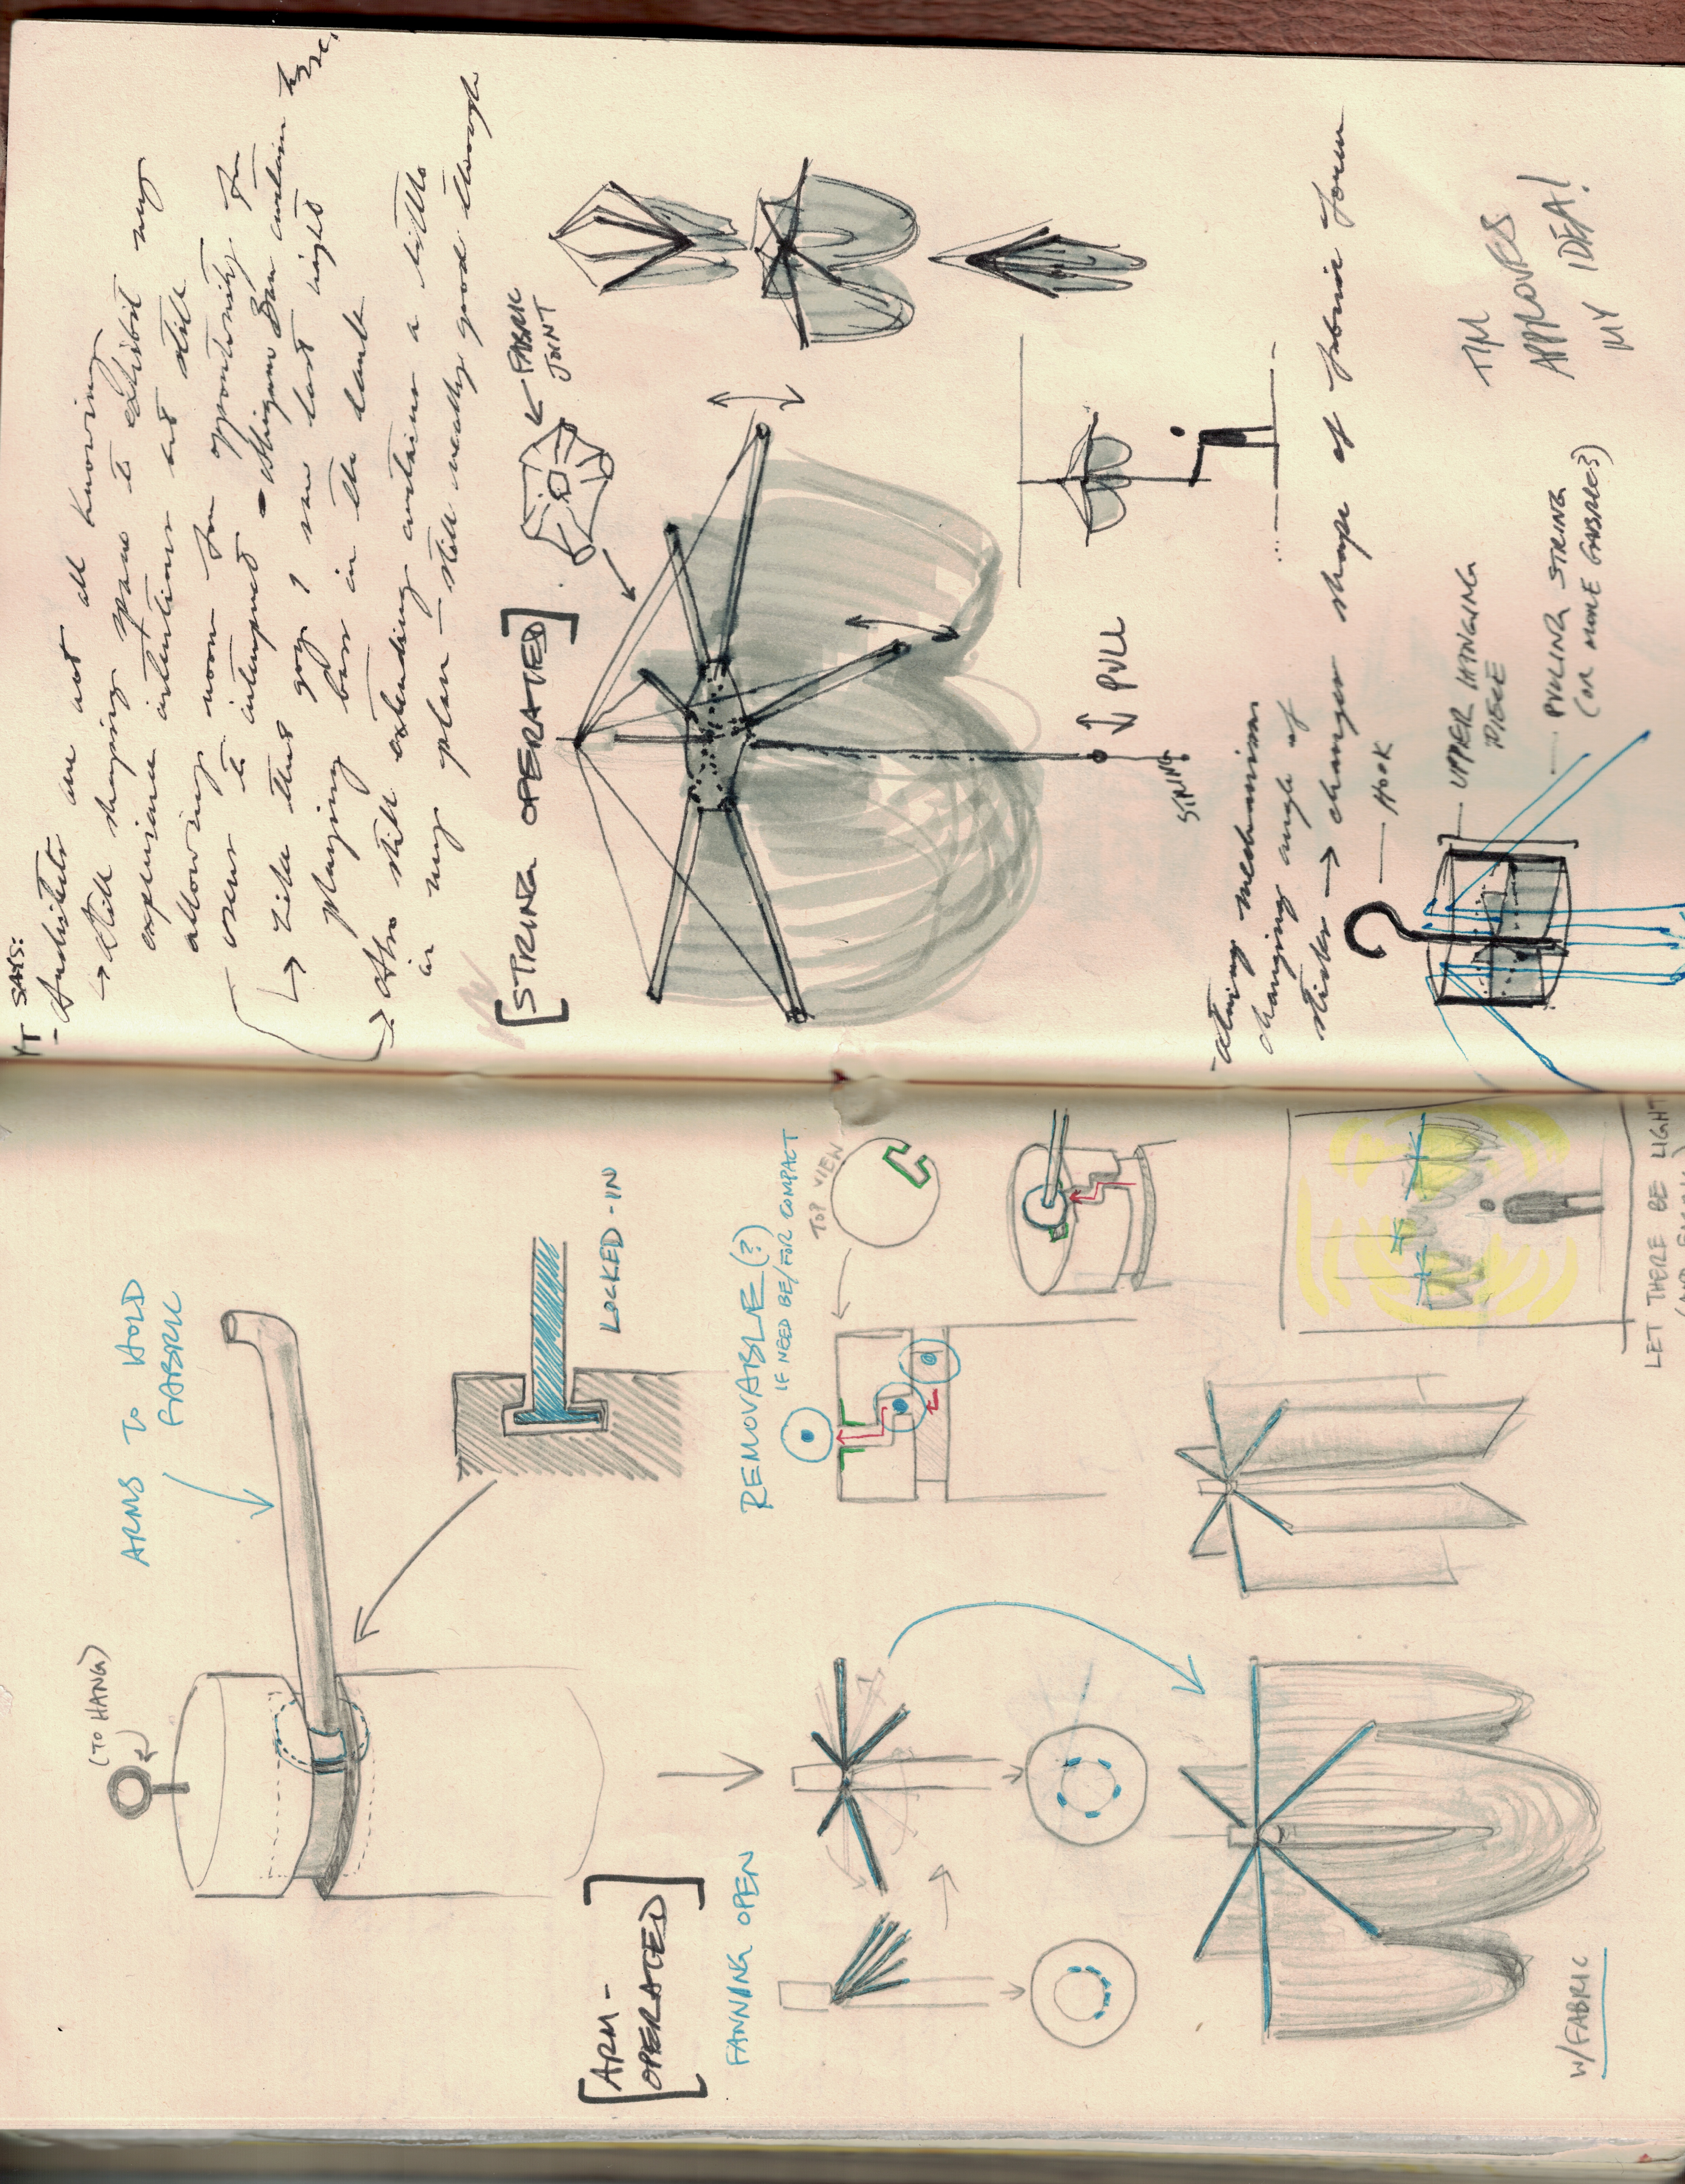 (TO HANG)
ARMS TO HOLD
FABRIC
LOCKED-IN
[ARM-
OPERATED]
FANNING OPEN
REMOVABLE(?)
IF NEED BE/FOR COMPACT
TOP VIEW
W/FABRIC
LET THERE BE LIGHT
YT SAYS:
- Architects are not all knowing
→ still shaping space to exhibit my
experience intentions but still
allowing room for opportunity for
users to interpret
↳ like this guy I saw last night
playing bass in the dark
→ Also still extending curtains a little
in my plan – still really good though
[STRING OPERATED]
← FABRIC
JOINT
PULL
STRING
mechanism
changing angle of
sticks → changes shape of fabric form
HOOK
UPPER HANGING
PIECE
PULLING STRING
(OR MORE CABLES?)
TIM
APPROVES
MY IDEA!